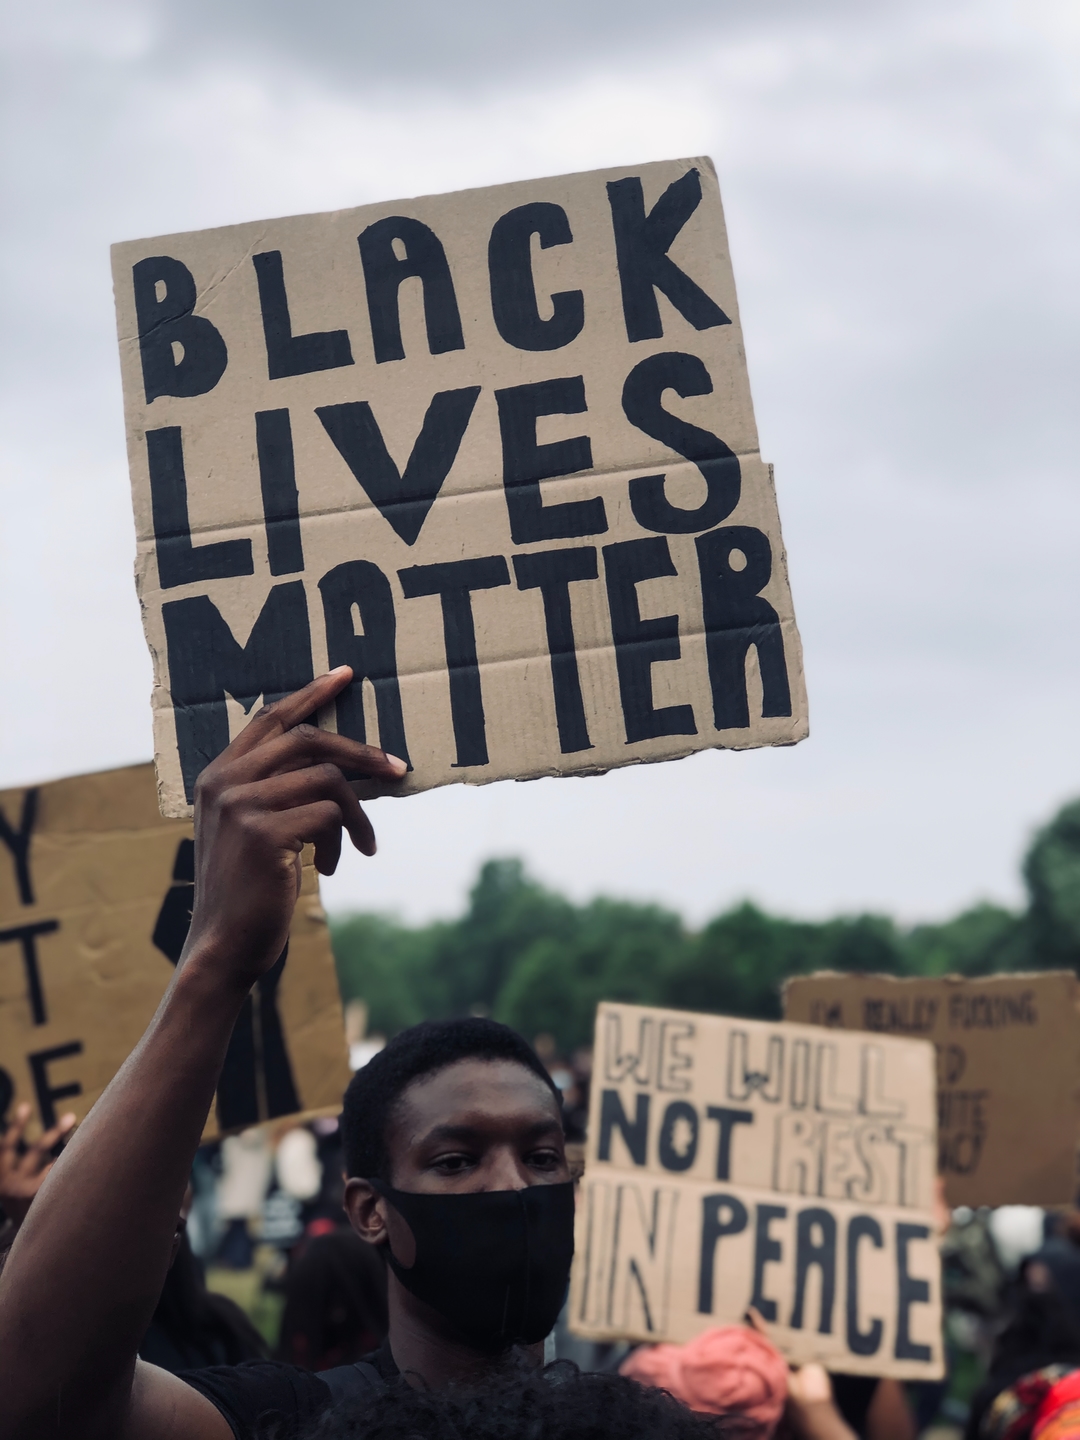 BLACK
LIVES
MATTER
WE WILL
NOT REST
IN PEACE
I'M REALLY FUCKING